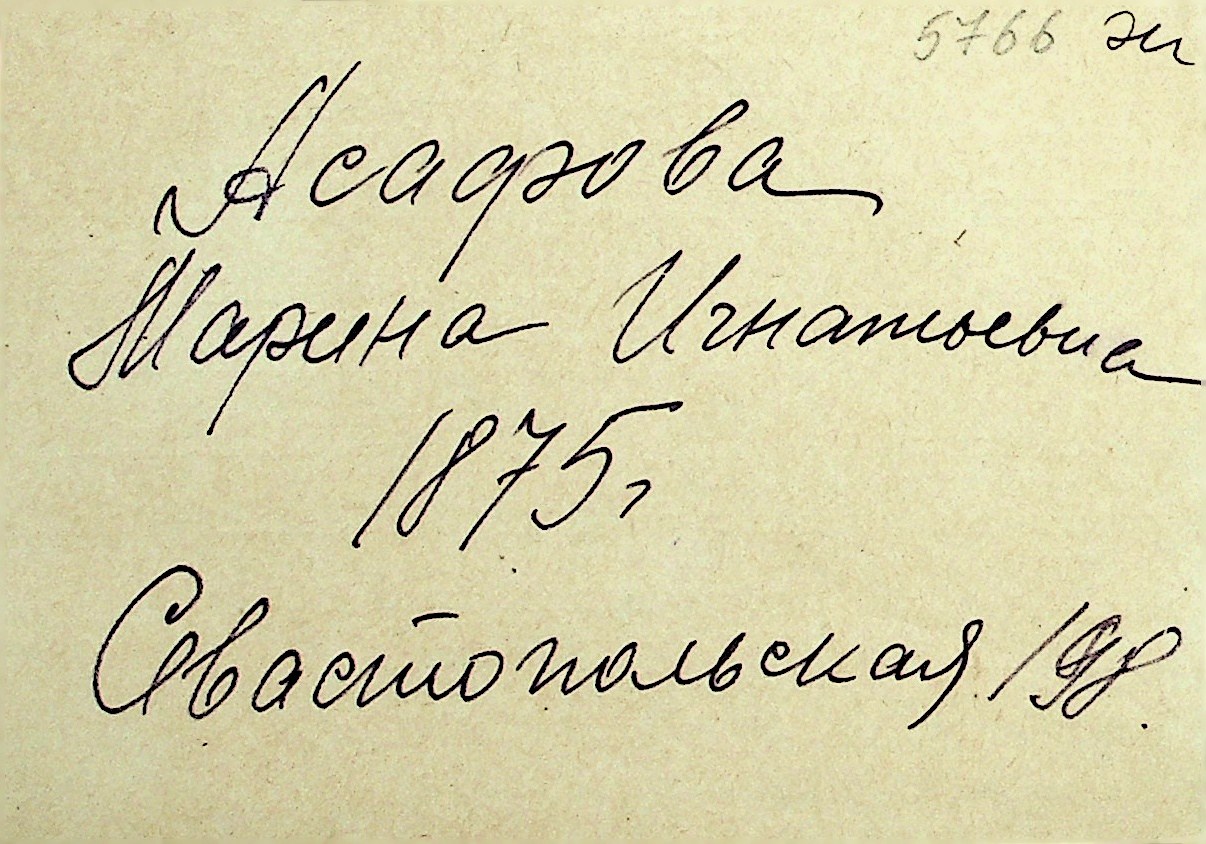 5766 эи
Асафова
Марина Игнатьевна
1875 г
Севастопольская 198.